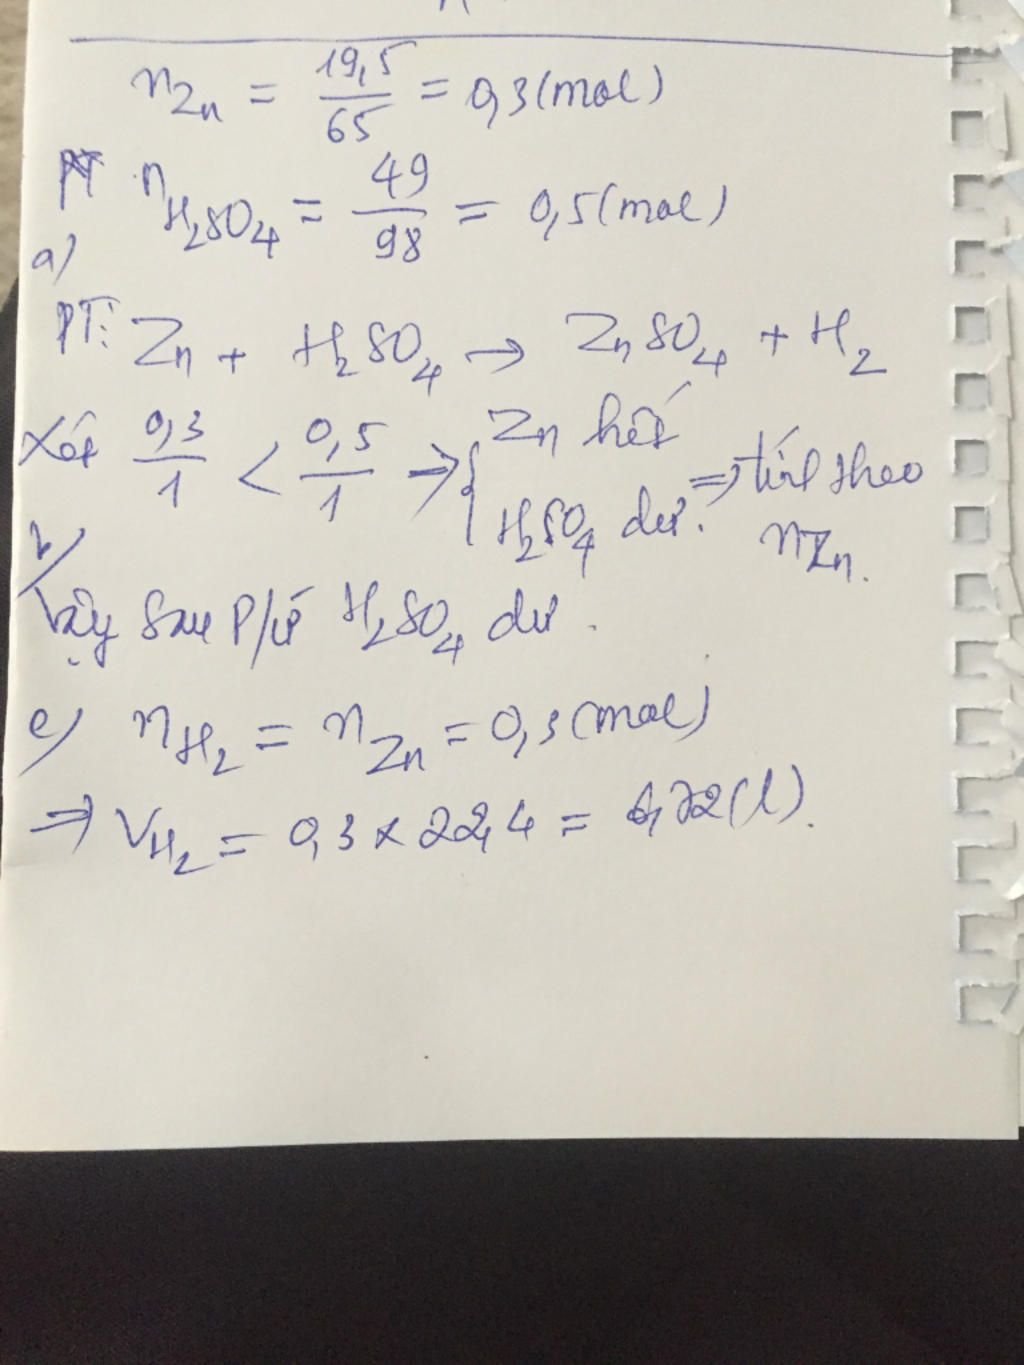 nZn = 19,5/65 = 0,3 (mol)
nH2SO4 = 49/98 = 0,5 (mol)
a)
PT: Zn + H2SO4 → ZnSO4 + H2
Xét 0,3/1 < 0,5/1 ⇒ { Zn hết
H2SO4 dư. ⇒ tính theo nZn.
b/
Vậy sau p/ứ H2SO4 dư.
c) nH2 = nZn = 0,3 (mol)
⇒ VH2 = 0,3 x 22,4 = 6,72 (l).